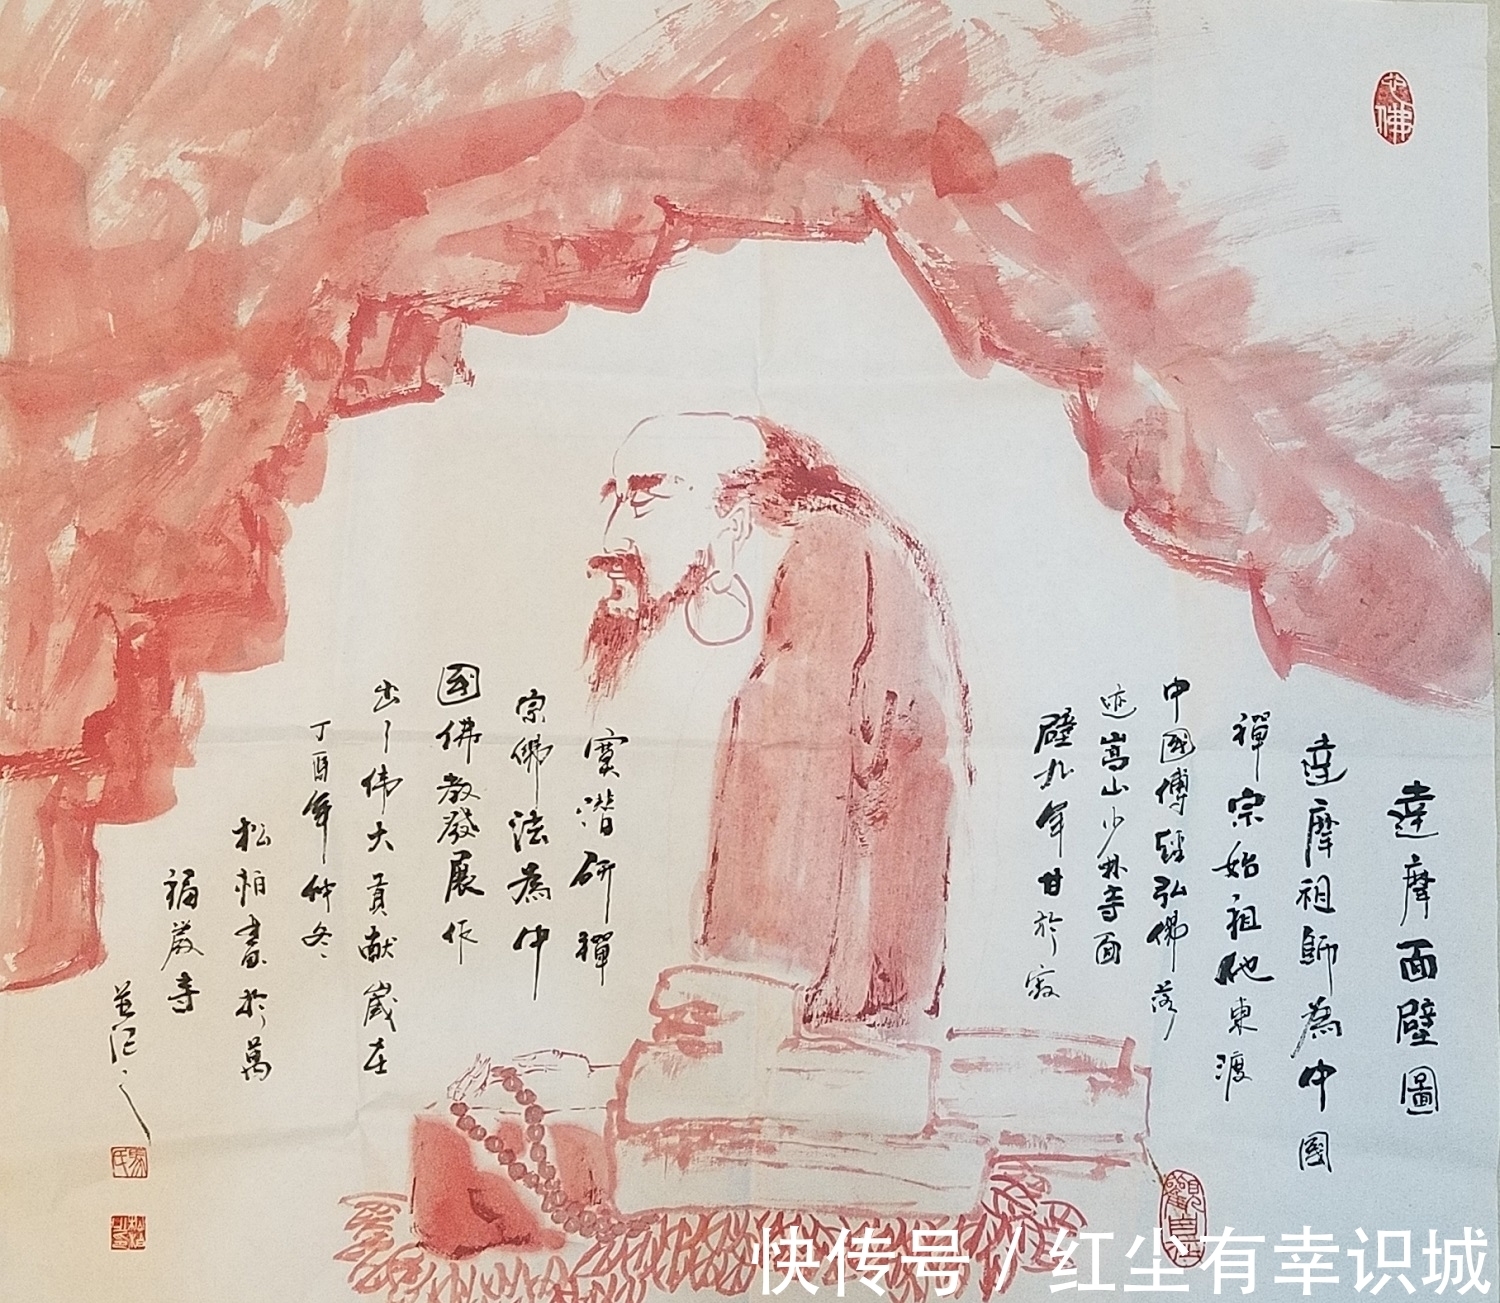 達摩面壁圖
達摩祖師為中國
禪宗始祖他東渡
中國傳經弘佛落
迹嵩山少林寺面
壁九年甘於寂
寞潜研禪
宗佛法為中
國佛教發展作
出了伟大贡献歲在
丁酉年仲冬
松柏畫於萬
福嚴寺
並記之
佛
快传号 / 红尘有幸识城